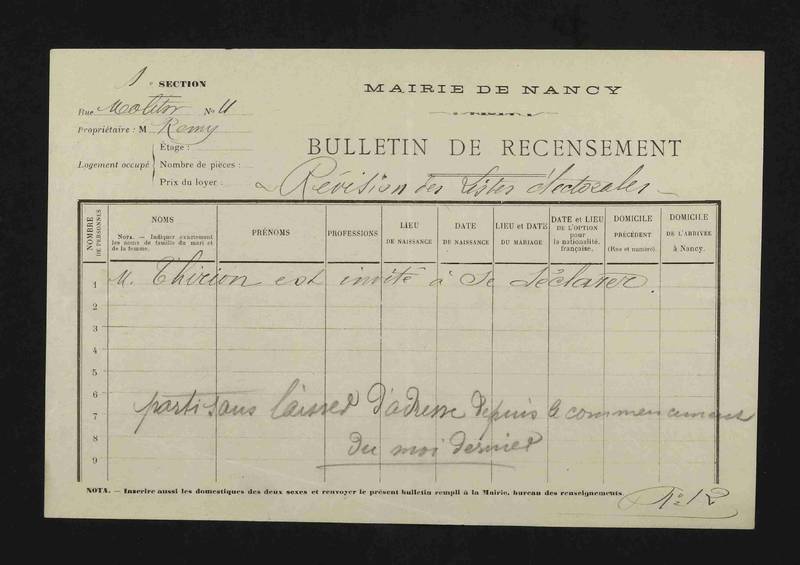 1e SECTION
Rue Molitor No 11
Propriétaire : M Remy
Logement occupé
Étage :
Nombre de pièces :
Prix du loyer :
MAIRIE DE NANCY
BULLETIN DE RECENSEMENT
Révision des Listes électorales
NOMBRE DE PERSONNES
NOMS
NOTA. — Indiquer exactement les noms de famille du mari et de la femme.
PRÉNOMS
PROFESSIONS
LIEU DE NAISSANCE
DATE DE NAISSANCE
LIEU et DATE DU MARIAGE
DATE et LIEU DE L'OPTION pour la nationalité française.
DOMICILE PRÉCÉDENT (Rue et numéro).
DOMICILE DE L'ARRIVÉE à Nancy.
1 M. Thirion est invité à se déclarer.
2
3
4
5
6
7 parti sans laisser d'adresse depuis le commencement
8 du moi dernier
9
NOTA. — Inscrire aussi les domestiques des deux sexes et renvoyer le présent bulletin rempli à la Mairie, bureau des renseignements.
No 12